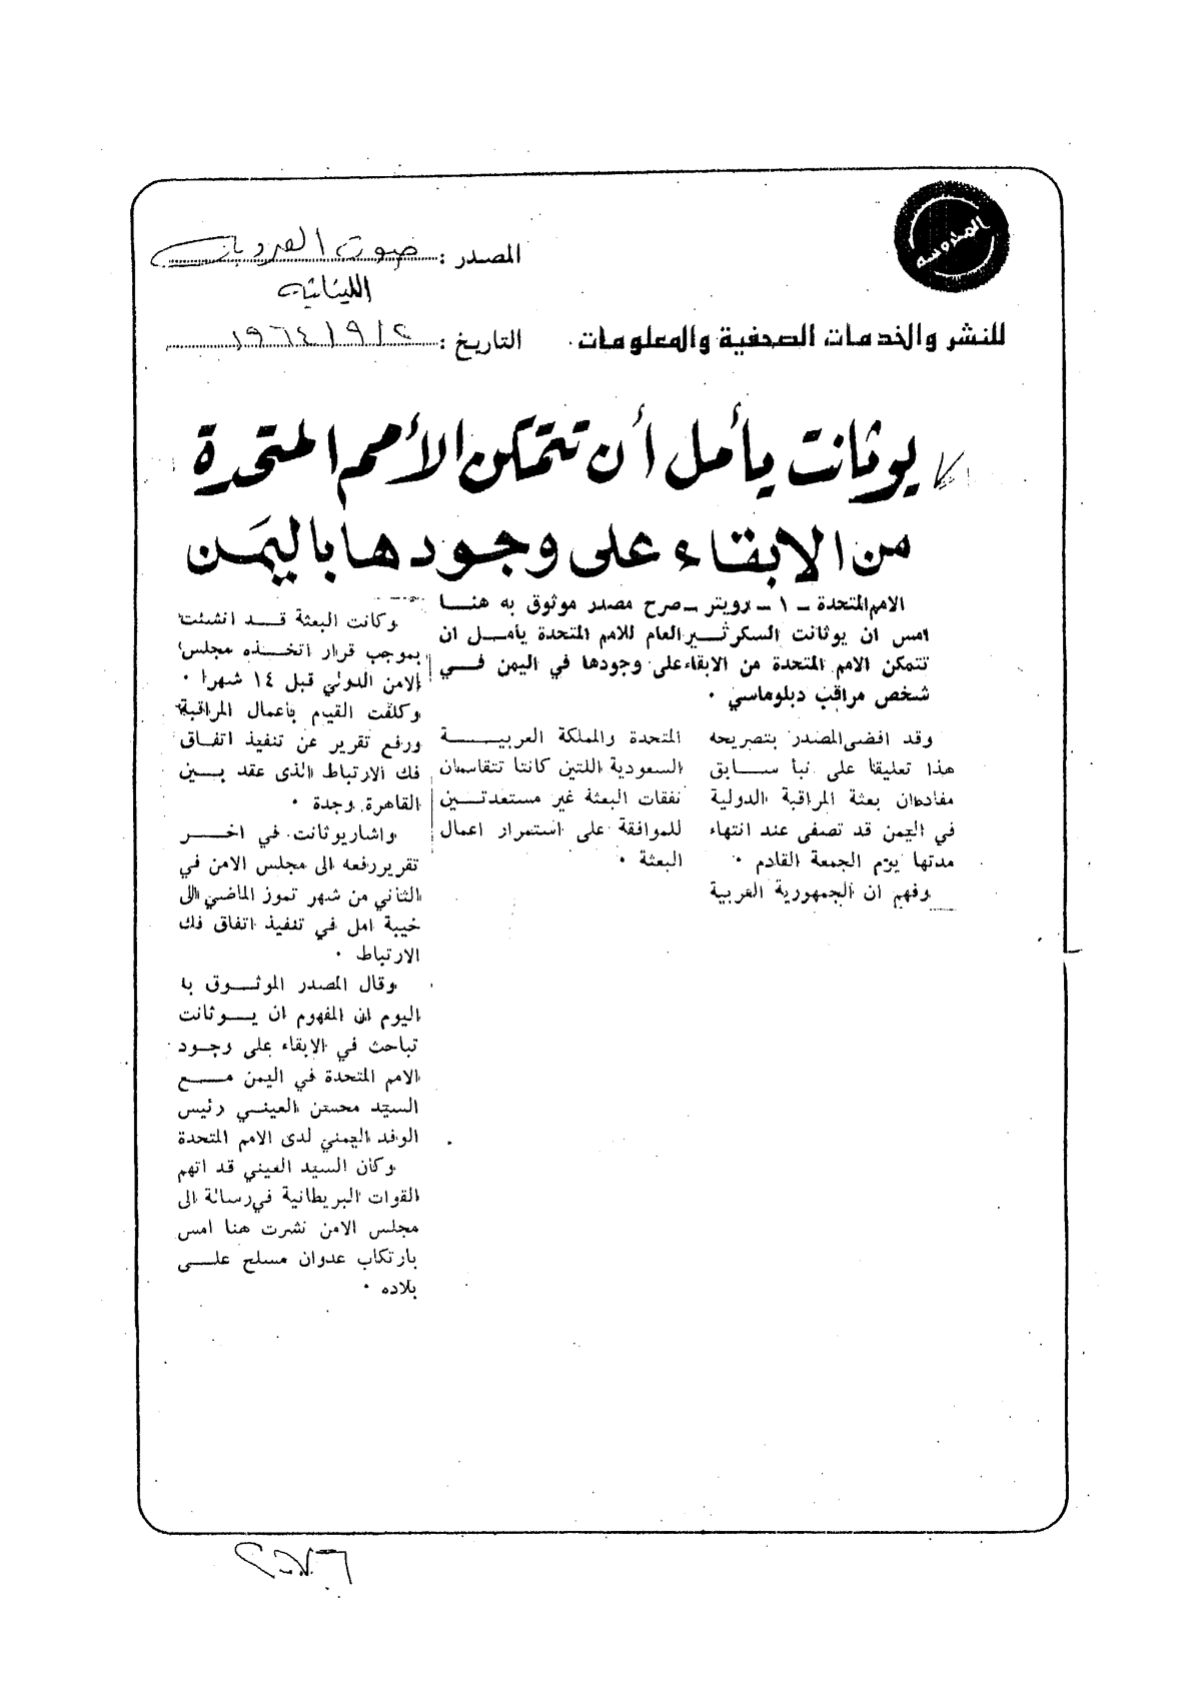 المحروسة
المصدر : صوت العروبة
اللبنانية
للنشر والخدمات الصحفية والمعلومات
التاريخ : ١٩٦٤/٩/٢
يوثانت يأمل أن تتمكن الأمم المتحدة
من الابقاء على وجودها باليمن
الامم المتحدة - ١ - رويتر - صرح مصدر موثوق به هنا
امس ان يوثانت السكرتير العام للامم المتحدة يأمل ان
تتمكن الامم المتحدة من الابقاء على وجودها في اليمن في
شخص مراقب دبلوماسي .
وقد افضى المصدر بتصريحه
هذا تعليقا على نبأ سابق
مفاده ان بعثة المراقبة الدولية
في اليمن قد تصفى عند انتهاء
مدتها يوم الجمعة القادم .
وفهم ان الجمهورية العربية
المتحدة والمملكة العربية
السعودية اللتين كانتا تتقاسمان
نفقات البعثة غير مستعدتين
للموافقة على استمرار اعمال
البعثة .
وكانت البعثة قد انشئت
بموجب قرار اتخذه مجلس
الامن الدولي قبل ١٤ شهرا .
وكلفت القيام بأعمال المراقبة
ورفع تقرير عن تنفيذ اتفاق
فك الارتباط الذى عقد بين
القاهرة وجدة .
واشار يوثانت في اخر
تقرير رفعه الى مجلس الامن في
الثاني من شهر تموز الماضي الى
خيبة امل في تنفيذ اتفاق فك
الارتباط .
وقال المصدر الموثوق به
اليوم ان المفهوم ان يوثانت
تباحث في الابقاء على وجود
الامم المتحدة في اليمن مع
السيد محسن العيني رئيس
الوفد اليمني لدى الامم المتحدة
وكان السيد العيني قد اتهم
القوات البريطانية في رسالة الى
مجلس الامن نشرت هنا امس
بارتكاب عدوان مسلح على
بلاده .